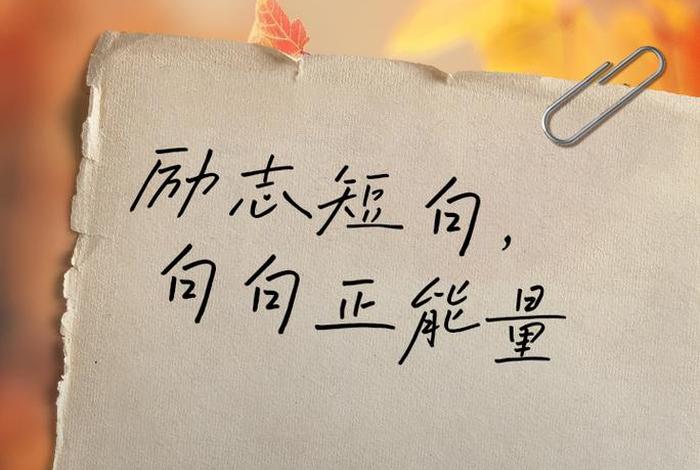 励志短句，
句句正能量